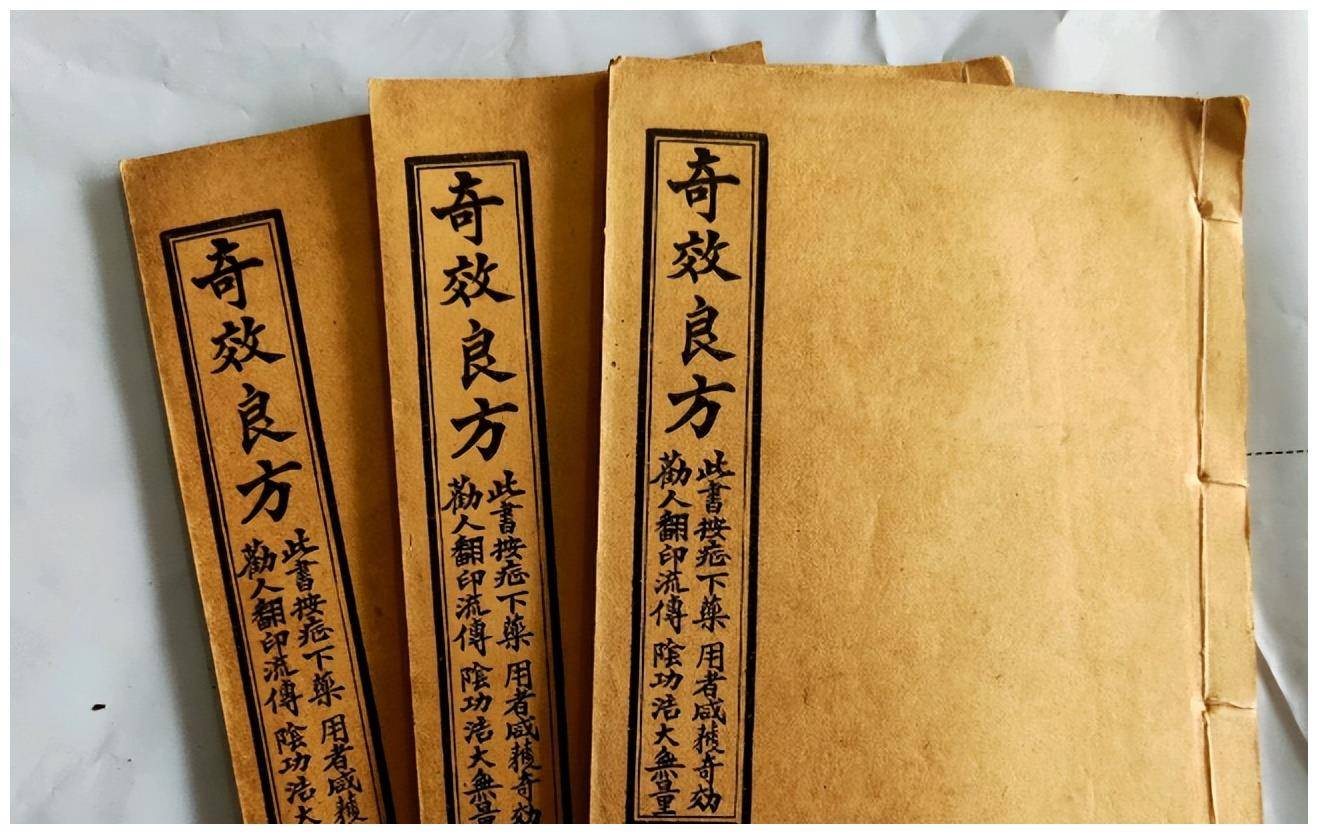 奇效良方
此書按症下藥 用者咸獲奇効
勸人翻印流傳 陰功浩大無量
奇效良方
此書按症下藥 用者咸獲奇効
勸人翻印流傳 陰功浩大無量
奇效良方
此書按症下藥 用者咸獲
勸人翻印流傳 陰功浩大